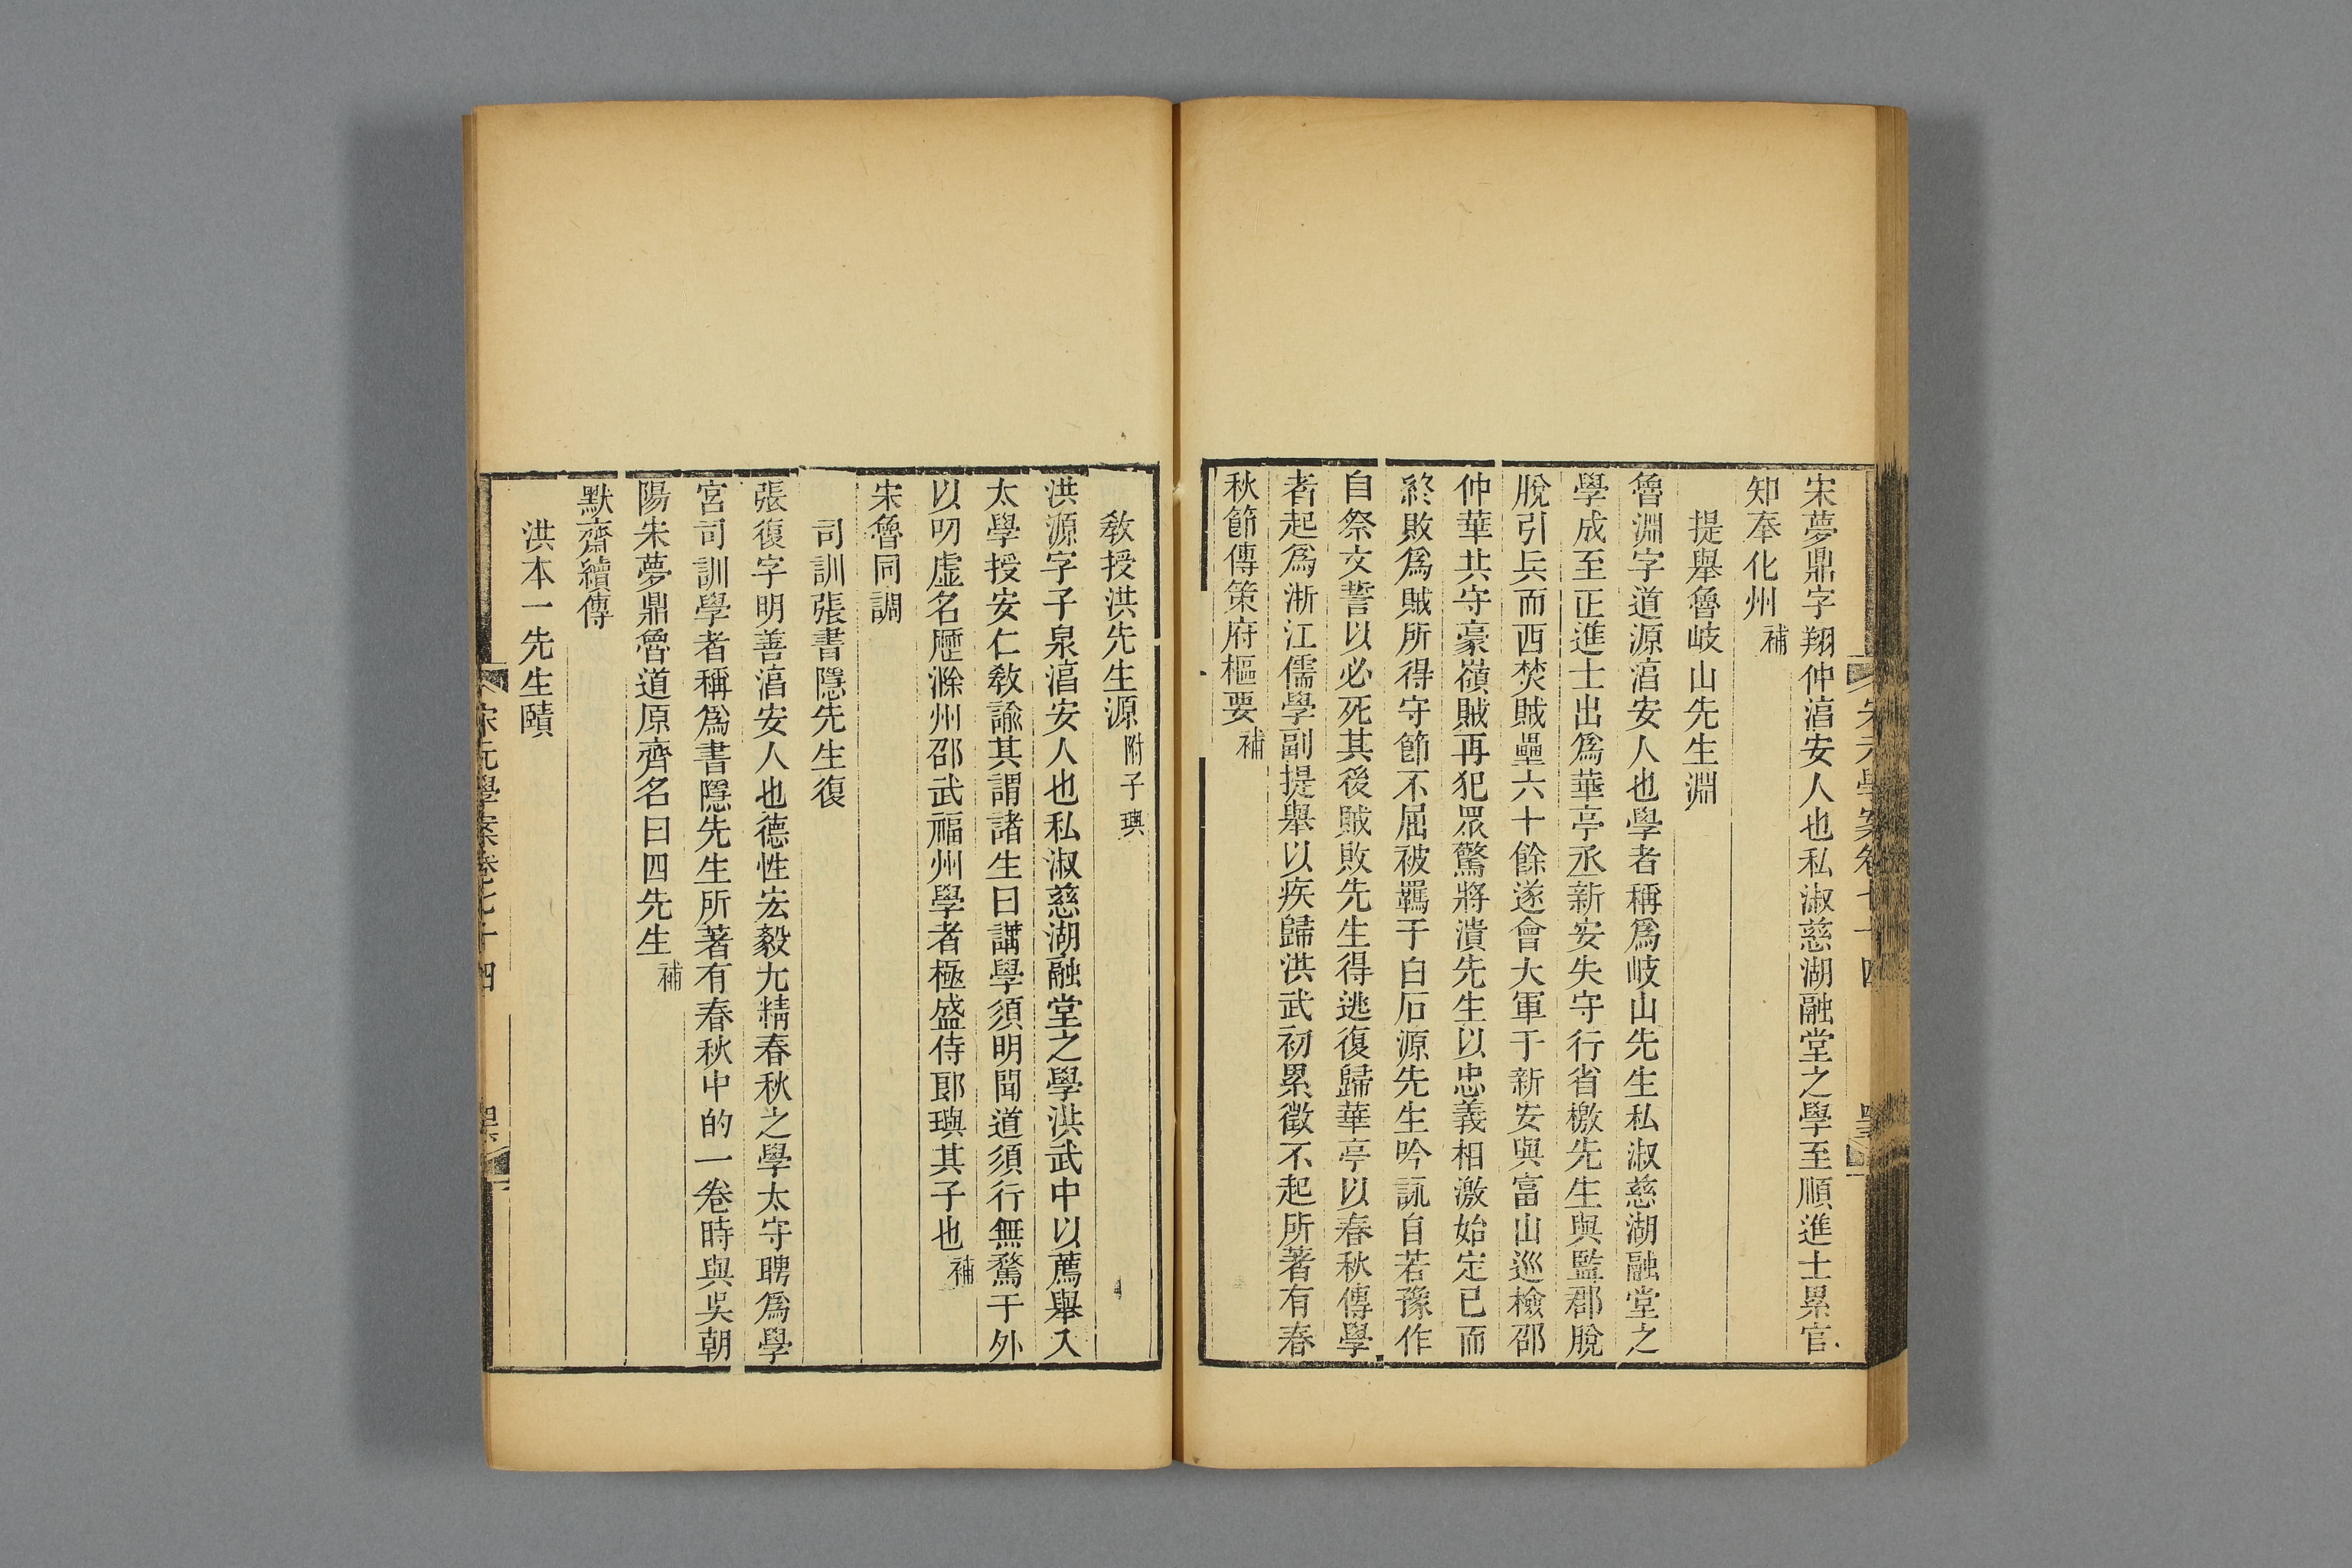 宋夢鼎字翔仲湻安人也私淑慈湖融堂之學至順進士累官
知奉化州補
提舉魯岐山先生淵
魯淵字道源湻安人也學者稱爲岐山先生私淑慈湖融堂之
學成至正進士出爲華亭丞新安失守行省檄先生與監郡脫
脫引兵而西焚賊壘六十餘遂會大軍于新安與富山巡檢邵
仲華共守豪嶺賊再犯眾驚將潰先生以忠義相激始定已而
終敗爲賊所得守節不屈被羈于白石源先生吟詠自若豫作
自祭文誓以必死其後賊敗先生得逃復歸華亭以春秋傳學
者起爲浙江儒學副提舉以疾歸洪武初累徵不起所著有春
秋節傳策府樞要補
教授洪先生源附子璵
洪源字子泉湻安人也私淑慈湖融堂之學洪武中以薦舉入
太學授安仁敎諭其謂諸生曰講學須明聞道須行無騖于外
以叨虛名歷滁州邵武福州學者極盛侍郎璵其子也補
宋魯同調
司訓張書隱先生復
張復字明善湻安人也德性宏毅尤精春秋之學太守聘爲學
宮司訓學者稱爲書隱先生所著有春秋中的一卷時與吳朝
陽朱夢鼎魯道原齊名曰四先生補
默齋續傳
洪本一先生賾
宋元學案卷七十四